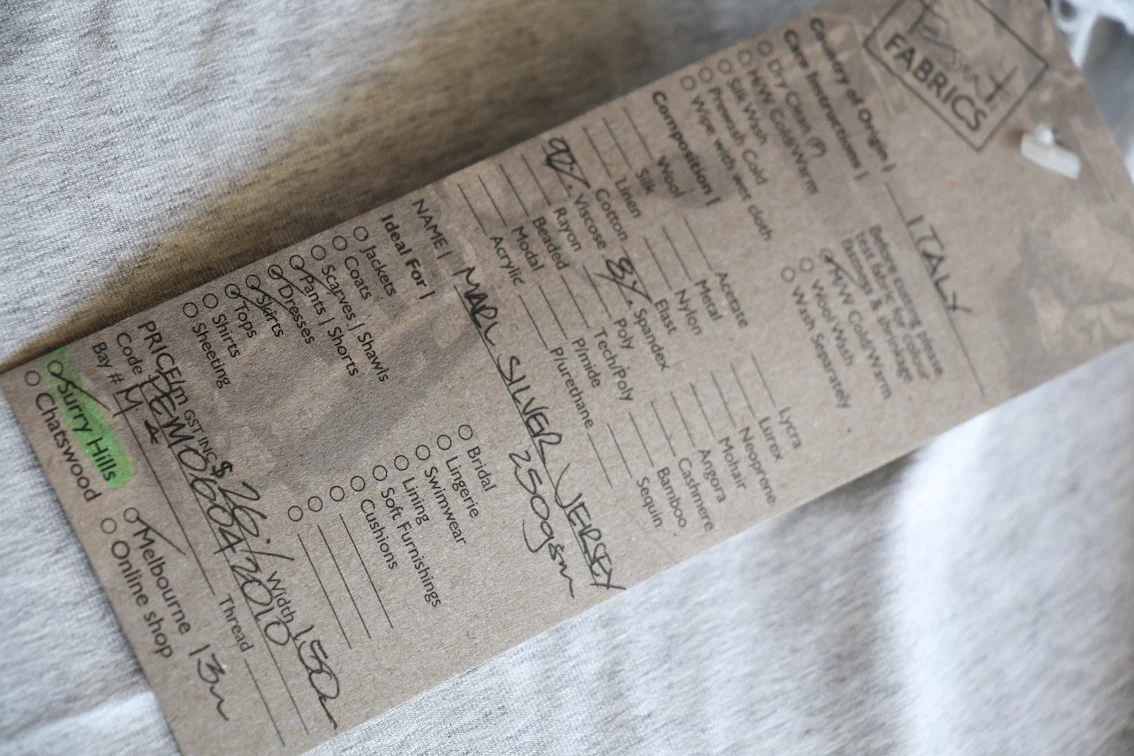 FABRICS
Country of Origin | ITALY
Care Instructions |
Before cutting please
test fabric for colour
fastings & shrinkage
Dry Clean (P)
H/W Cold/Warm
Silk Wash
Prewash Cold
Wipe with wet cloth
M/W Cold/Warm
Wool Wash
Wash Separately
Composition |
Wool
Silk
Linen
Cotton
92% Viscose
Rayon
Beaded
Modal
Acrylic
Acetate
Metal
Nylon
Elast
8% Spandex
Poly
Tech/Poly
P/mide
P/urethane
Lycra
Lurex
Neoprene
Mohair
Angora
Cashmere
Bamboo
Sequin
NAME | MARL SILVER JERSEY
250gsm
Ideal For |
Jackets
Coats
Scarves | Shawls
Pants | Shorts
Dresses
Skirts
Tops
Shirts
Sheeting
Bridal
Lingerie
Swimwear
Lining
Soft Furnishings
Cushions
PRICE/m GST INC $ 26./ Width 150
Code
Bay # M2 Thread
Surry Hills
Chatswood
Melbourne 13m
Online shop